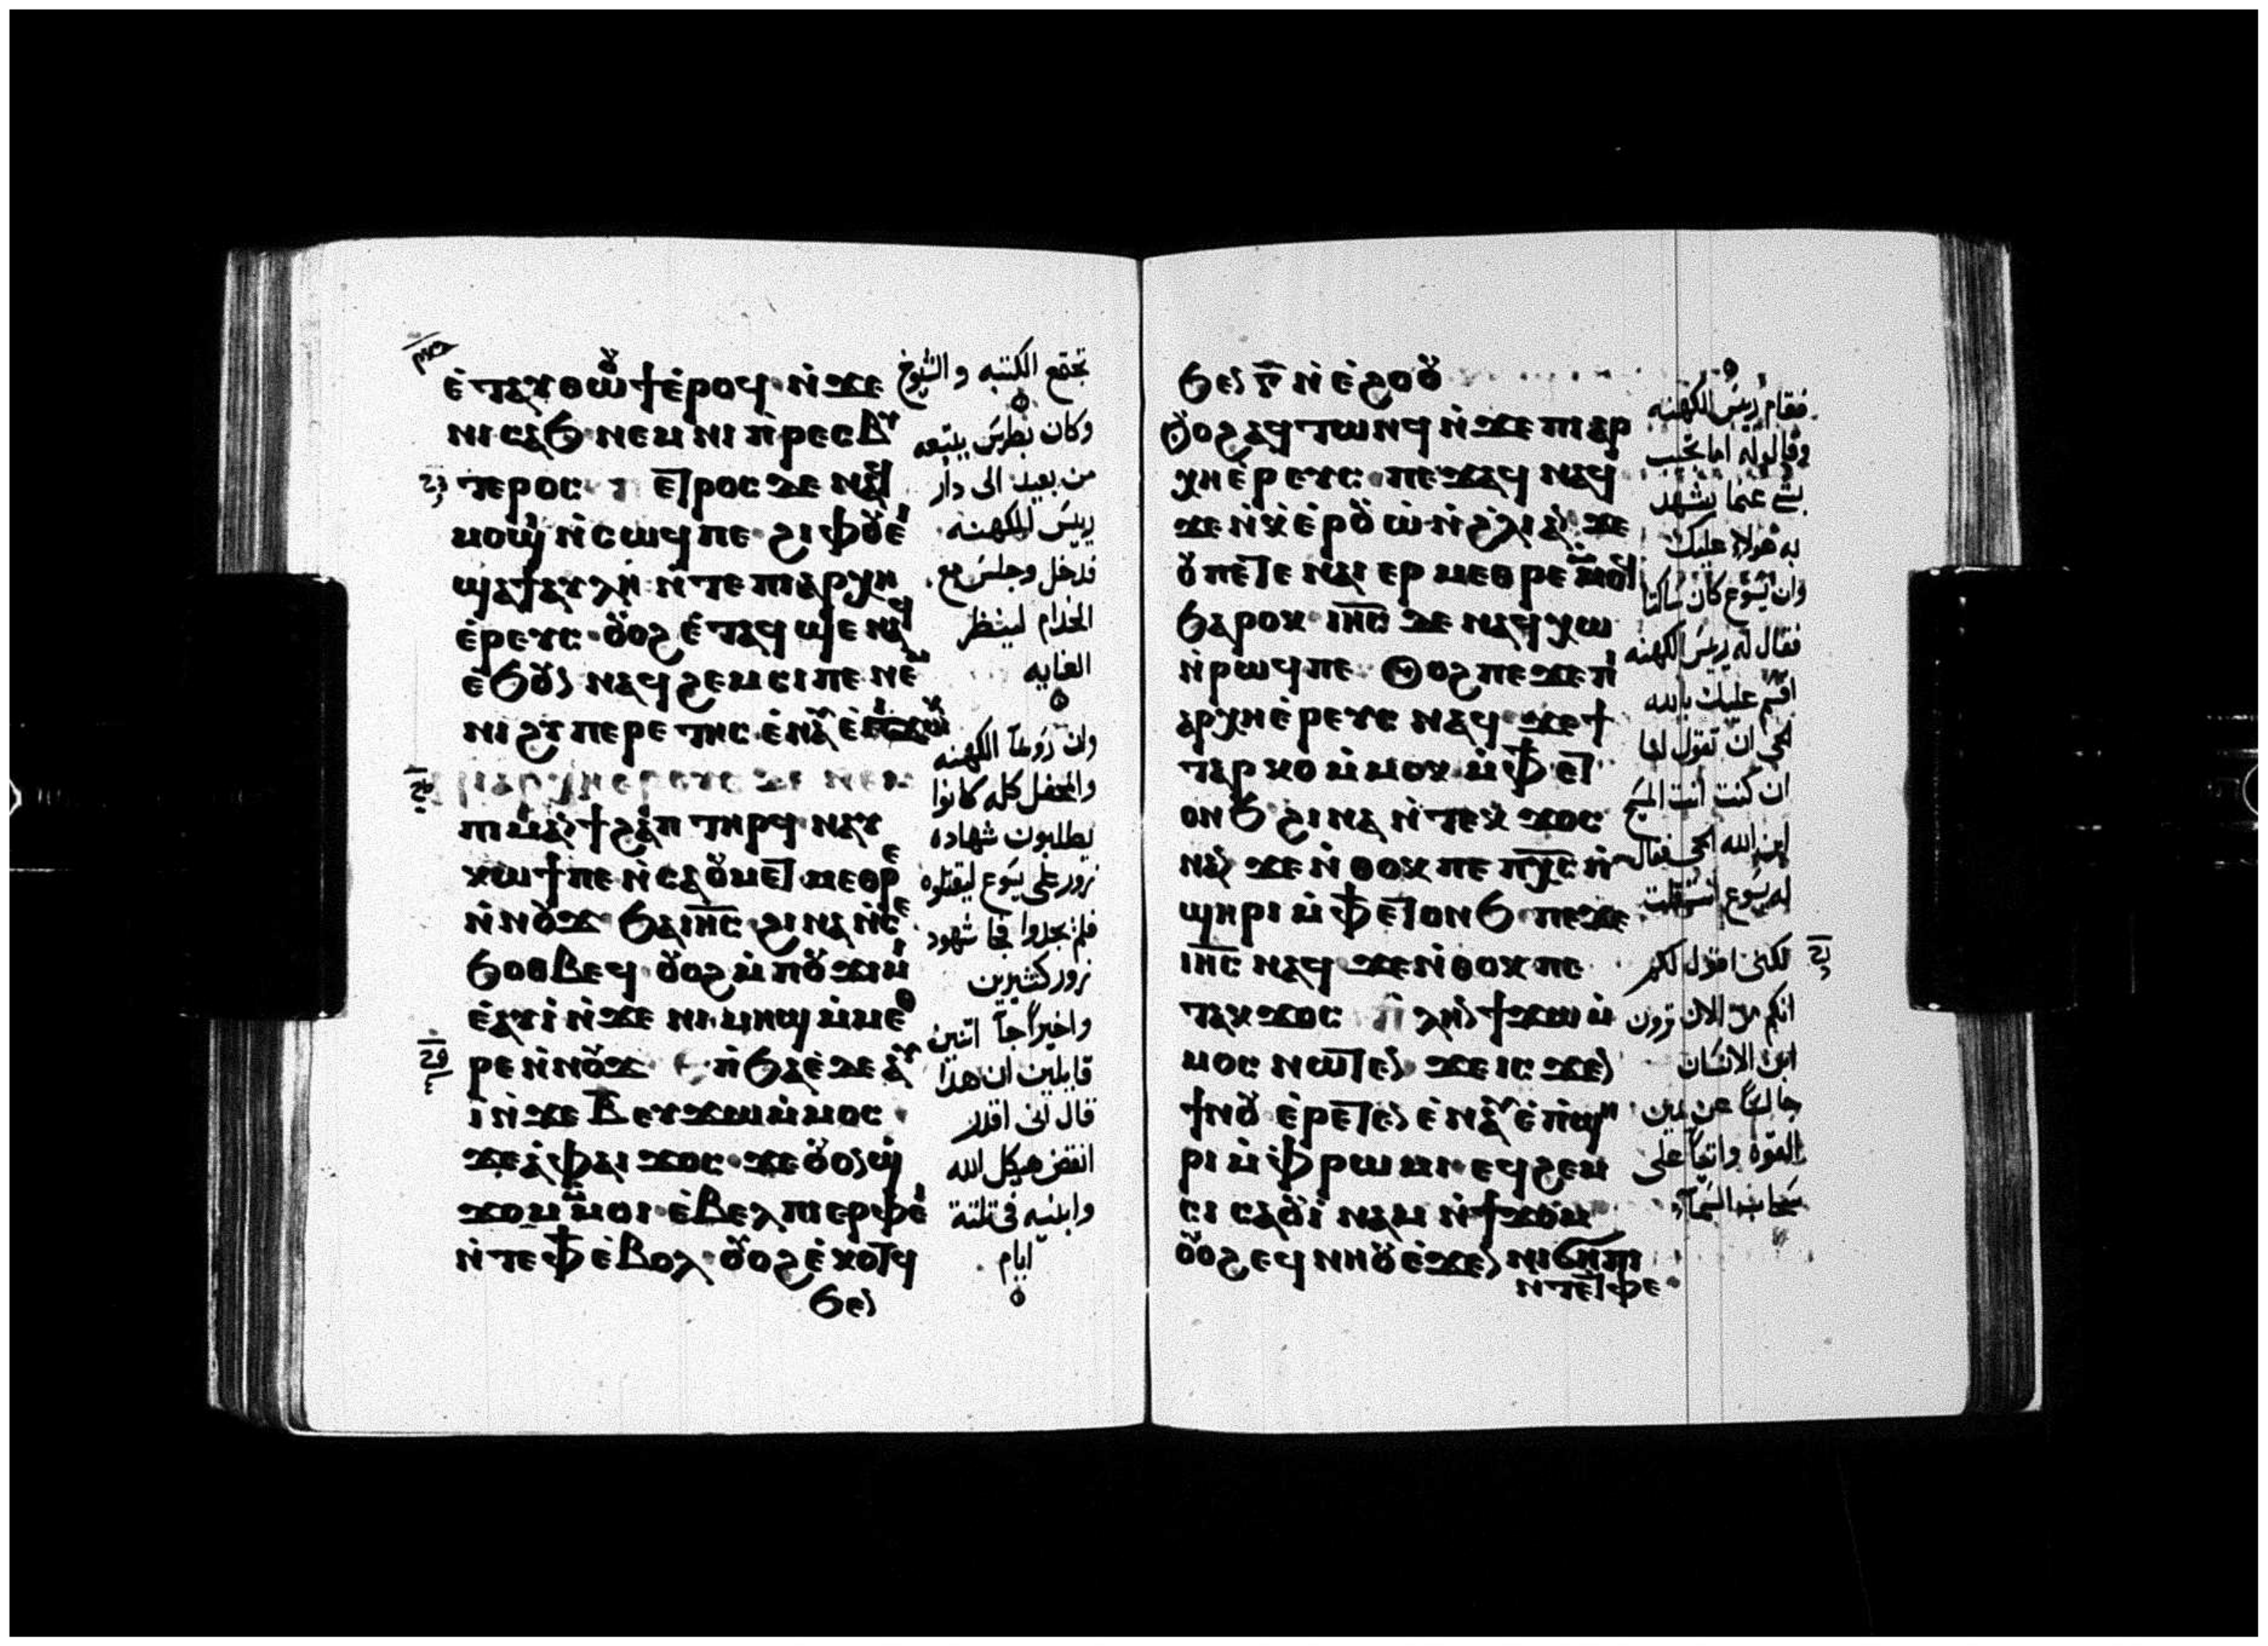 ⲉ̀ⲧⲁⲩⲑⲱⲟⲩϯ ⲉ̀ⲣⲟϥ ⲛ̀ϫⲉ
ⲛⲓⲥⲁϧ ⲛⲉⲙ ⲛⲓⲡ̀ⲣⲉⲥⲃⲩ
ⲧⲉⲣⲟⲥ
ⲙⲟϣⲓ ⲛ̀ⲥⲱϥ ⲡⲉ ϩⲓ ⲫⲟⲩⲉⲓ
ϣⲁ ϯⲁⲩⲗⲏ ⲛ̀ⲧⲉ ⲡⲓⲁⲣⲭⲏ
ⲉ̀ⲣⲉⲩⲥ ⲟⲩⲟϩ ⲉ̀ⲧⲁϥϣⲉ ⲛⲁϥ
ⲉ̀ϧⲟⲩⲛ ⲛⲁϥϩⲉⲙⲥⲓ ⲡⲉ ⲛⲉⲙ
ⲛⲓϩⲩⲡⲉⲣⲉⲧⲏⲥ ⲉ̀ⲛⲁⲩ
ⲡⲓⲙⲁⲛϯϩⲁⲡ ⲧⲏⲣϥ ⲛⲁⲩ
ⲕⲱϯ ⲡⲉ ⲛ̀ⲥⲁ ⲟⲩⲙⲉⲧⲙⲉⲑⲣⲉ
ⲛ̀ⲛⲟⲩϫ ϧⲁ ⲓⲏⲥ ϩⲓⲛⲁ ⲛ̀ⲥⲉ
ϧⲟⲑⲃⲉϥ ⲟⲩⲟϩ ⲙ̀ⲡⲟⲩϫⲓⲙⲓ
ⲉ̀ⲁⲩⲓ̀ ⲛ̀ϫⲉ ⲛⲓⲙⲏϣ ⲙ̀ⲙⲉⲑ
ⲣⲉ ⲛ̀ⲛⲟⲩϫ ⲉⲡ̀ϧⲁⲉ̀ ⲇⲉ ⲁⲩ
ⲓ̀ ⲛ̀ϫⲉ ⲃ̅ ⲉⲩϫⲱ ⲙ̀ⲙⲟⲥ
ϫⲉ ⲁ̀ ⲫⲁⲓ ϫⲟⲥ ϫⲉ ⲟⲩⲟⲛϣ
ϫⲟⲙ ⲙ̀ⲙⲟⲓ ⲉ̀ⲃⲉⲗ ⲡⲓⲉⲣⲫⲉⲓ
ⲛ̀ⲧⲉ ⲫϯ ⲉ̀ⲃⲟⲗ ⲟⲩⲟϩ ⲉ̀ⲕⲟⲧϥ
ϧⲉⲛ
تجتمع الكتبه والشيوخ
وكان بطرس يتبعه
من بعيد الى دار
رييس الكهنه
فدخل وجلس مع
الخدام لينظر
الغايه
وان روسآ الكهنه
والمحفل كله كانوا
يطلبون شهاده
زور على يسوع ليقتلوه
فلم يجدوا فجا شهود
زور كثيرين
واخيراً جآ اثنين
قايلين ان هذا
قال انى اقدر
انقض هيكل الله
وابنيه فى تلتة
ايام
ϧⲉⲛ ⲅ̅ ⲛ̀ⲉ̀ϩⲟⲟⲩ
ⲟⲩⲟϩ ⲁϥⲧⲱⲛϥ ⲛ̀ϫⲉ ⲡⲓⲁⲣ
ⲭⲏⲉ̀ⲣⲉⲩⲥ ⲡⲉϫⲁϥ ⲛⲁϥ
ϫⲉ ⲛ̀ⲕ̀ⲉ̀ⲣⲟⲩⲱ̀ ⲛ̀ϩ̀ⲗⲓ ⲁⲛ ϫⲉ
ⲟⲩ ⲡⲉⲧⲉ ⲛⲁⲓ ⲉⲣⲙⲉⲑⲣⲉ ⲙ̀ⲙⲟϥ
ϧⲁⲣⲟⲕ ⲓⲏⲥ ⲇⲉ ⲛⲁϥⲭⲱ
ⲛ̀ⲣⲱϥ ⲡⲉ ⲟⲩⲟϩ ⲡⲉϫⲉ ⲡⲓ
ⲁⲣⲭⲏⲉ̀ⲣⲉⲩⲥ ⲛⲁϥ ϫⲉ ϯ
ⲧⲁⲣⲕⲟ ⲙ̀ⲙⲟⲕ ⲙ̀ⲫϯ ⲉⲧ
ⲟⲛϧ ϩⲓⲛⲁ ⲛ̀ⲧⲉⲕϫⲟⲥ
ⲛⲁⲛ ϫⲉ ⲛ̀ⲑⲟⲕ ⲡⲉ ⲡⲭ̅ⲥ̅ ⲡ̀
ϣⲏⲣⲓ ⲙ̀ⲫϯ ⲉⲧⲟⲛϧ ⲡⲉϫⲉ
ⲓⲏⲥ ⲛⲁϥ ϫⲉ ⲛ̀ⲑⲟⲕ ⲡⲉ
ⲧⲁⲕϫⲟⲥ ⲡⲗⲏⲛ ϯϫⲱ ⲙ̀
ⲙⲟⲥ ⲛⲱⲧⲉⲛ ϫⲉ ⲓⲥϫⲉⲛ
ϯⲛⲟⲩ ⲉ̀ⲣⲉⲧⲉⲛⲉ̀ⲛⲁⲩ ⲉ̀ⲡ̀ϣⲏ
ⲣⲓ ⲙ̀ⲫⲣⲱⲙⲓ ⲉϥϩⲉⲙ
ⲥⲓ ⲥⲁⲟⲩⲓ̀ⲛⲁⲙ ⲛ̀ϯϫⲟⲙ
ⲟⲩⲟϩ ⲉϥⲛⲏⲟⲩ ⲉ̀ϫⲉⲛ ⲛⲓϭⲏⲡⲓ
ⲛ̀ⲧⲉ ⲧⲫⲉ
فقام رييس الكهنه
وقال له اما تجيب
بشى عنما يشهد
به هولاء عليك
وان يسوع كان ساكتا
فقال له رييس الكهنه
اقسم عليك بالله
الحى ان تقول لنا
ان كنت انت المسيح
ابن الله الحى فقال
له يسوع انت قلت
لكنى اقول لكم
انكم من الان ترون
ابن الانسان
جالسًا عن يمين
القوه واتيًا على
سحاب السمآء